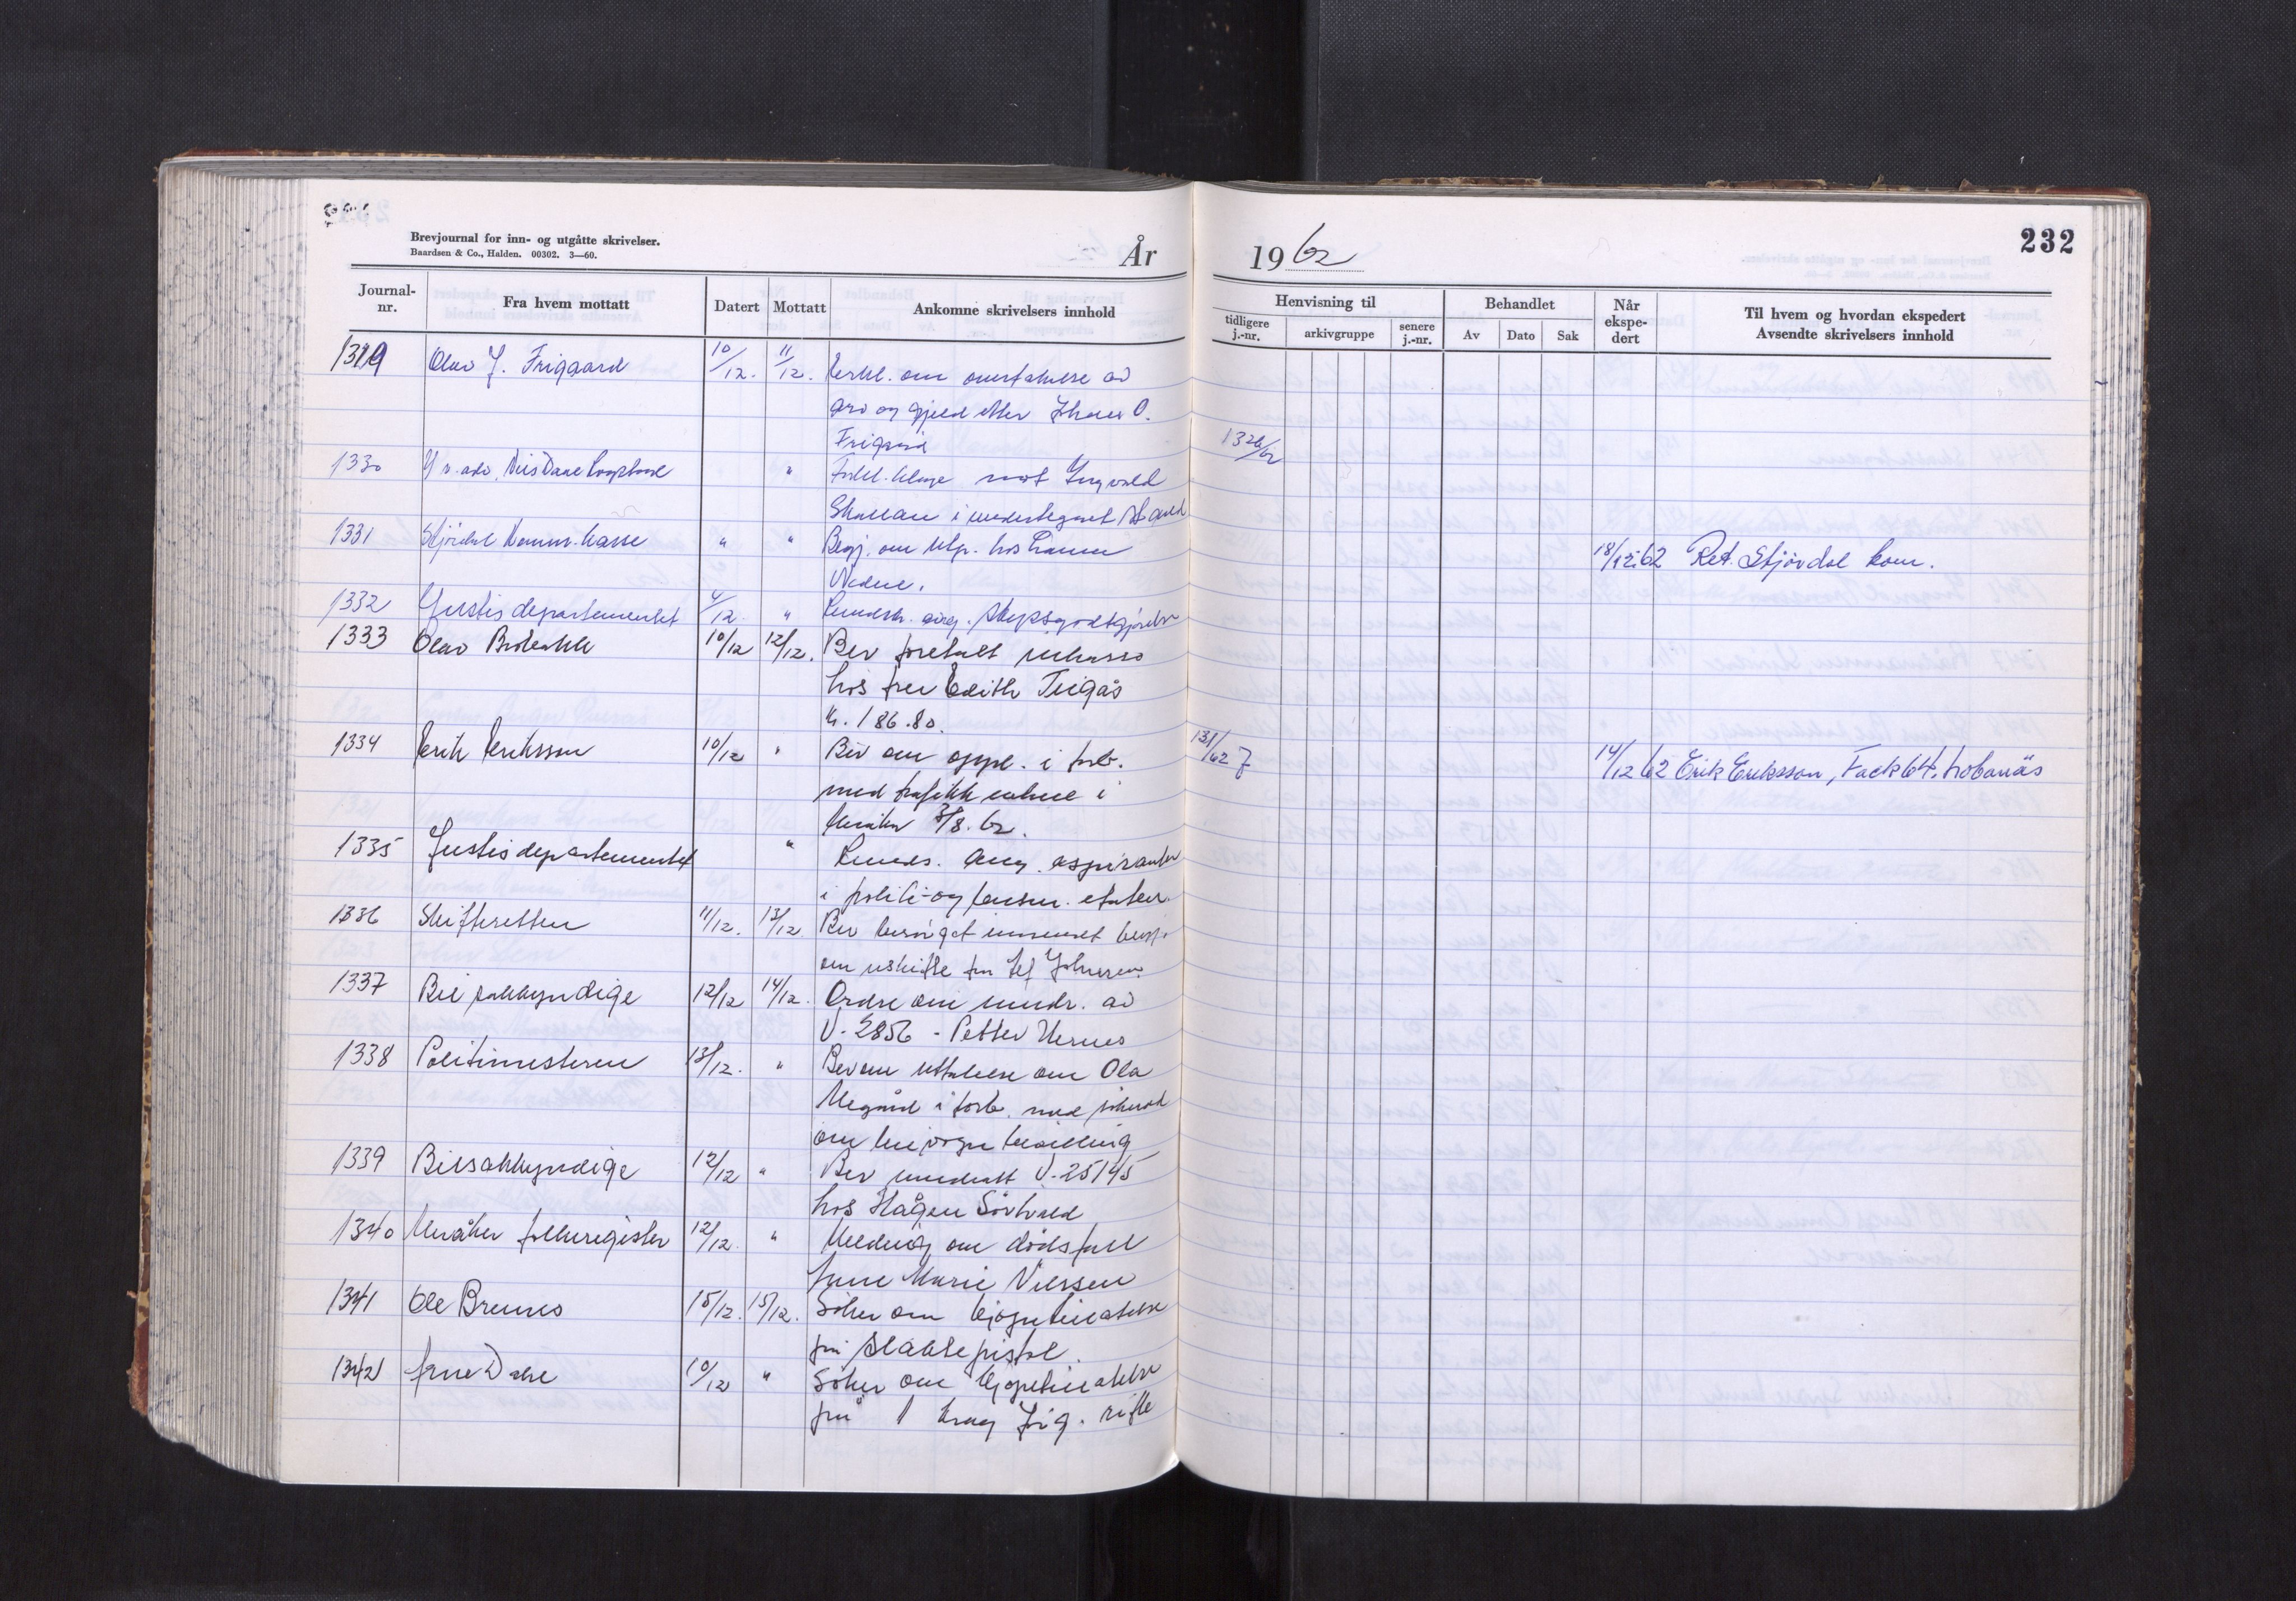 232
Brevjournal for inn- og utgåtte skrivelser.
Baardsen & Co., Halden. 00302. 3—60.
År 1962
Journal-nr. Fra hvem mottatt Datert Mottatt Ankomne skrivelsers innhold
Henvisning til Behandlet Når ekspedert Til hvem og hvordan ekspedert
tidligere j.-nr. arkivgruppe senere j.-nr. Av Dato Sak Avsendte skrivelsers innhold
Olav J. Frigaard 10/12. 11/12. om overtakelse av
arv og gjeld etter O.
1330 " mot Ingvald 1326/62
i
1331 Stjørdal komm. kasse " " Begj. om utp. hos
18/12.62 Ret. Stjørdal kom.
1332 Justisdepartementet 4/12. " Rundskr. ang. skyssgodtgjørelse
1333 Olav 10/12 12/12. Bev foretatt inkasso
hos fru Edith Trigås
kr. 186.80.
1334 Erik Eriksson 10/12 " Bev om oppl. i forb. 131/62 7
med trafikkuhell i
Meråker 3/8.62.
14/12 62 Erik Eriksson, Fack 64,
1335 Justisdepartementet " Runds. ang. aspiranter
i politi- og lensm. etaten.
1336 Skifteretten 11/12. 13/12. Bev besørget innsendt begj.
om uskifte fra Johnsen
1337 Bilsakkyndige 12/12 14/12. Ordre om inndr. av
V-2856 - Petter Hernes
1338 Politimesteren 13/12. " Bev om uttalelse om Ola
Megård i forb. med søknad
om leievogn bevilling
1339 Bilsakkyndige 12/12 " Bev inndratt V-25145
hos Hågen
1340 Meråker folkeregister 12/12. " Melding om dødsfall
Marie Nilssen
1341 Ole Brenno 15/12. 15/12. Søker om kjøpetillatelse
på slaktepistol.
1342 Arne Dahl 10/12 " Søker om kjøpetillatelse
på 1 Krag Jørg. rifle